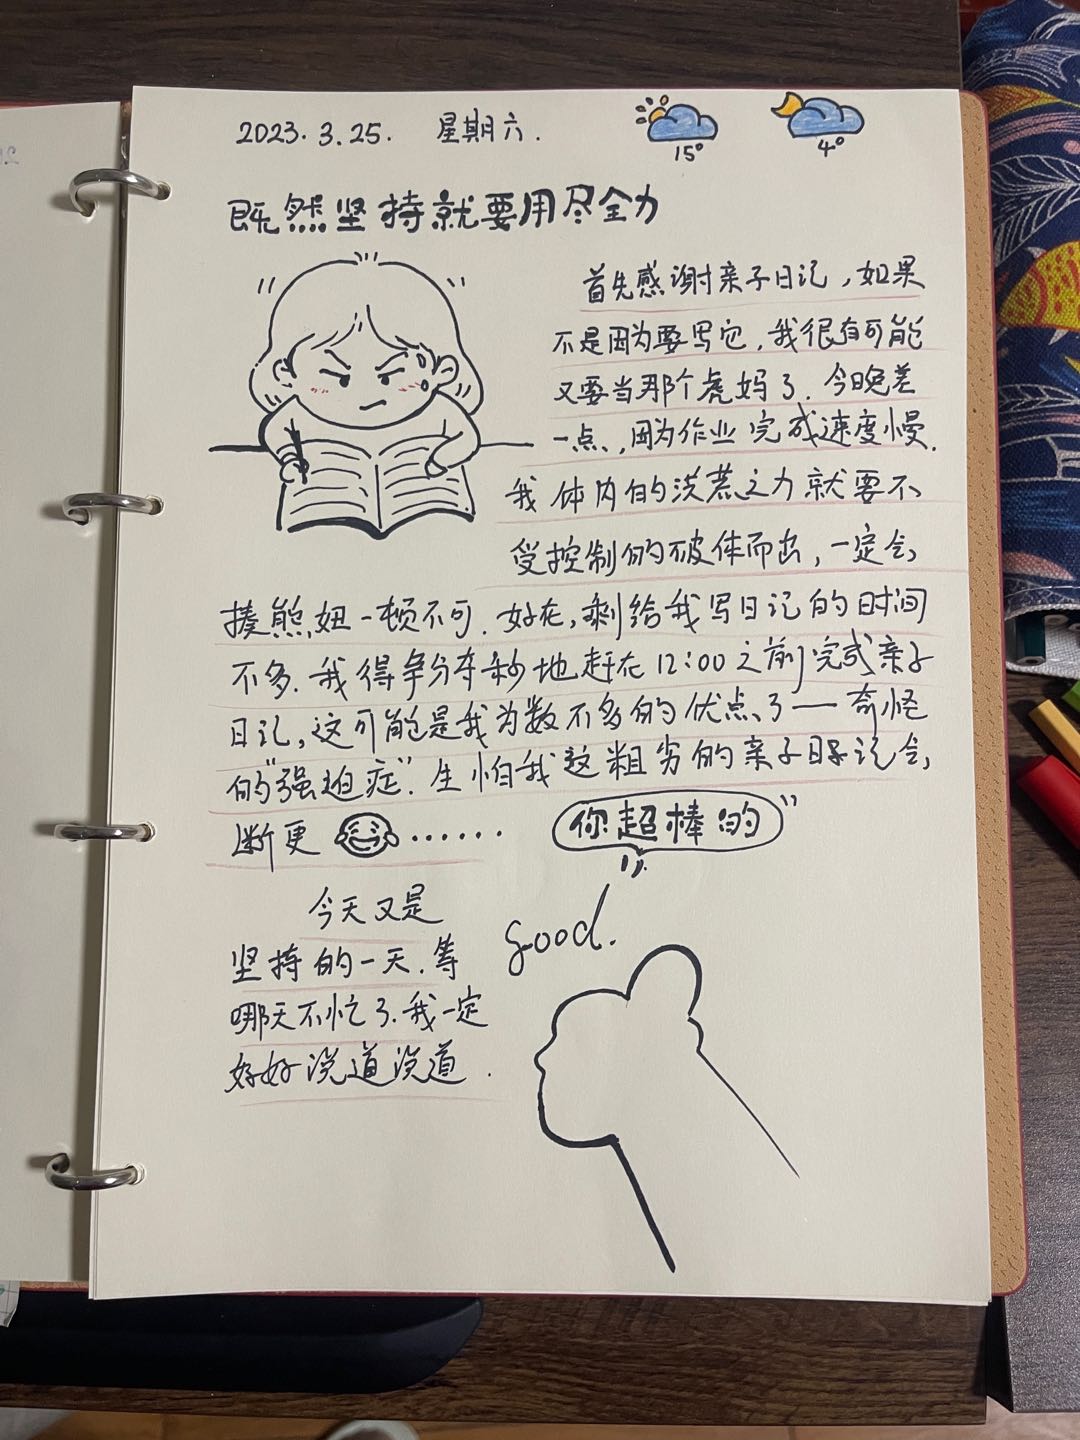 2023.3.25. 星期六.
15°
4°
既然坚持就要用尽全力
首先感谢亲子日记,如果
不是因为要写它,我很有可能
又要当那个虎妈了.今晚差
一点,因为作业完成速度慢.
我体内的洪荒之力就要不
受控制的破体而出,一定会
揍熊妞一顿不可.好在,剩给我写日记的时间
不多.我得争分夺秒地赶在12:00之前完成亲子
日记,这可能是我为数不多的优点了——奇怪
的"强迫症".生怕我这粗劣的亲子日记会
断更😂······
你超棒的
good.
今天又是
坚持的一天.等
哪天不忙了.我一定
好好说道说道.